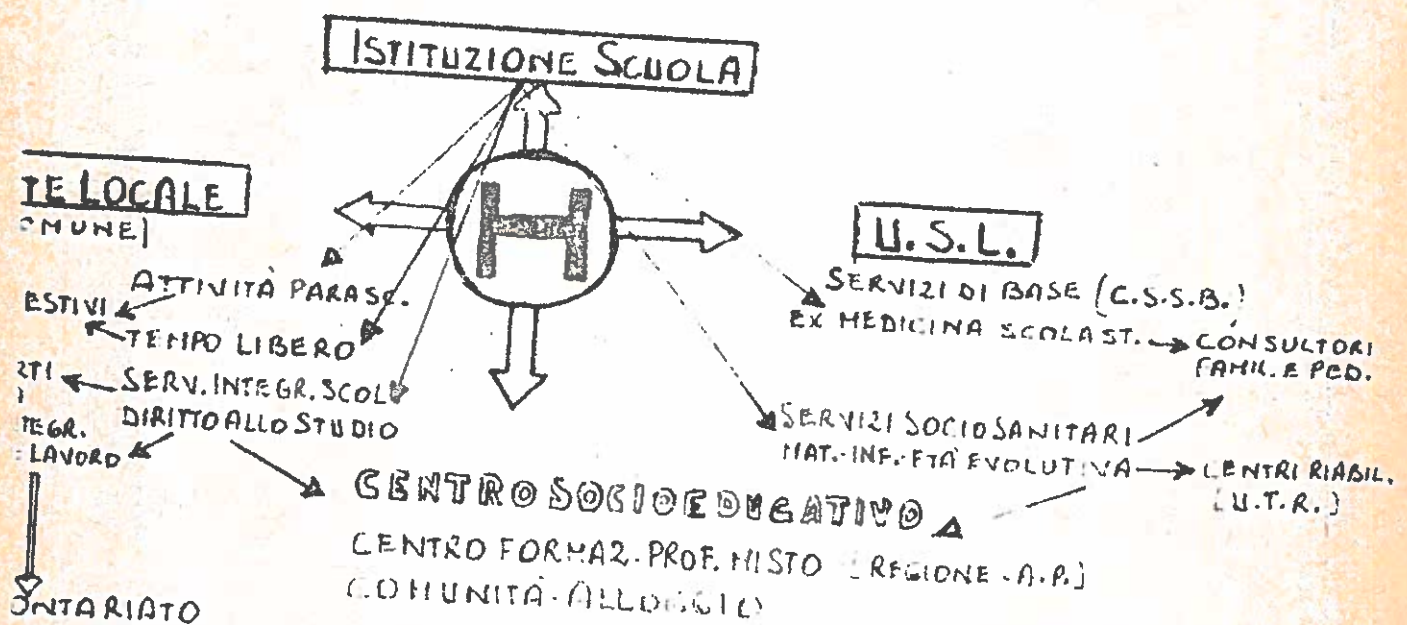 ISTITUZIONE SCUOLA
TE LOCALE
OMUNE]
H
U.S.L.
ATTIVITÀ PARASC.
ESTIVI
TEMPO LIBERO
RTI
SERV. INTEGR. SCOL
DIRITTO ALLO STUDIO
TEGR.
LAVORO
ONTARIATO
SERVIZI DI BASE (C.S.S.B.)
EX MEDICINA SCOLAST.
CONSULTORI
FAMIL. E PED.
SERVIZI SOCIOSANITARI
MAT.-INF.-ETÀ EVOLUTIVA
CENTRI RIABIL.
(U.T.R.)
CENTRO SOCIOEDUCATIVO
CENTRO FORMAZ. PROF. MISTO [REGIONE - A.P.]
COMUNITÀ-ALLOGGIO